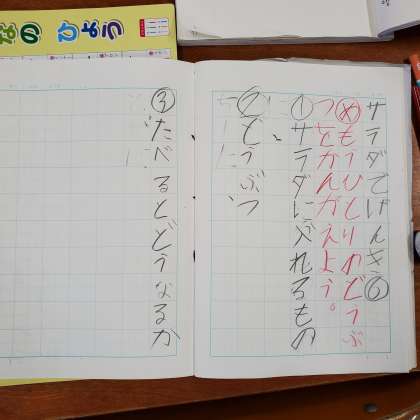 サラダでげんき⑥
めもうひとりのどうぶ
つとかんがえよう。
①サラダに入れるもの
②どうぶつ
③たべるとどうなるか
なの ひょう